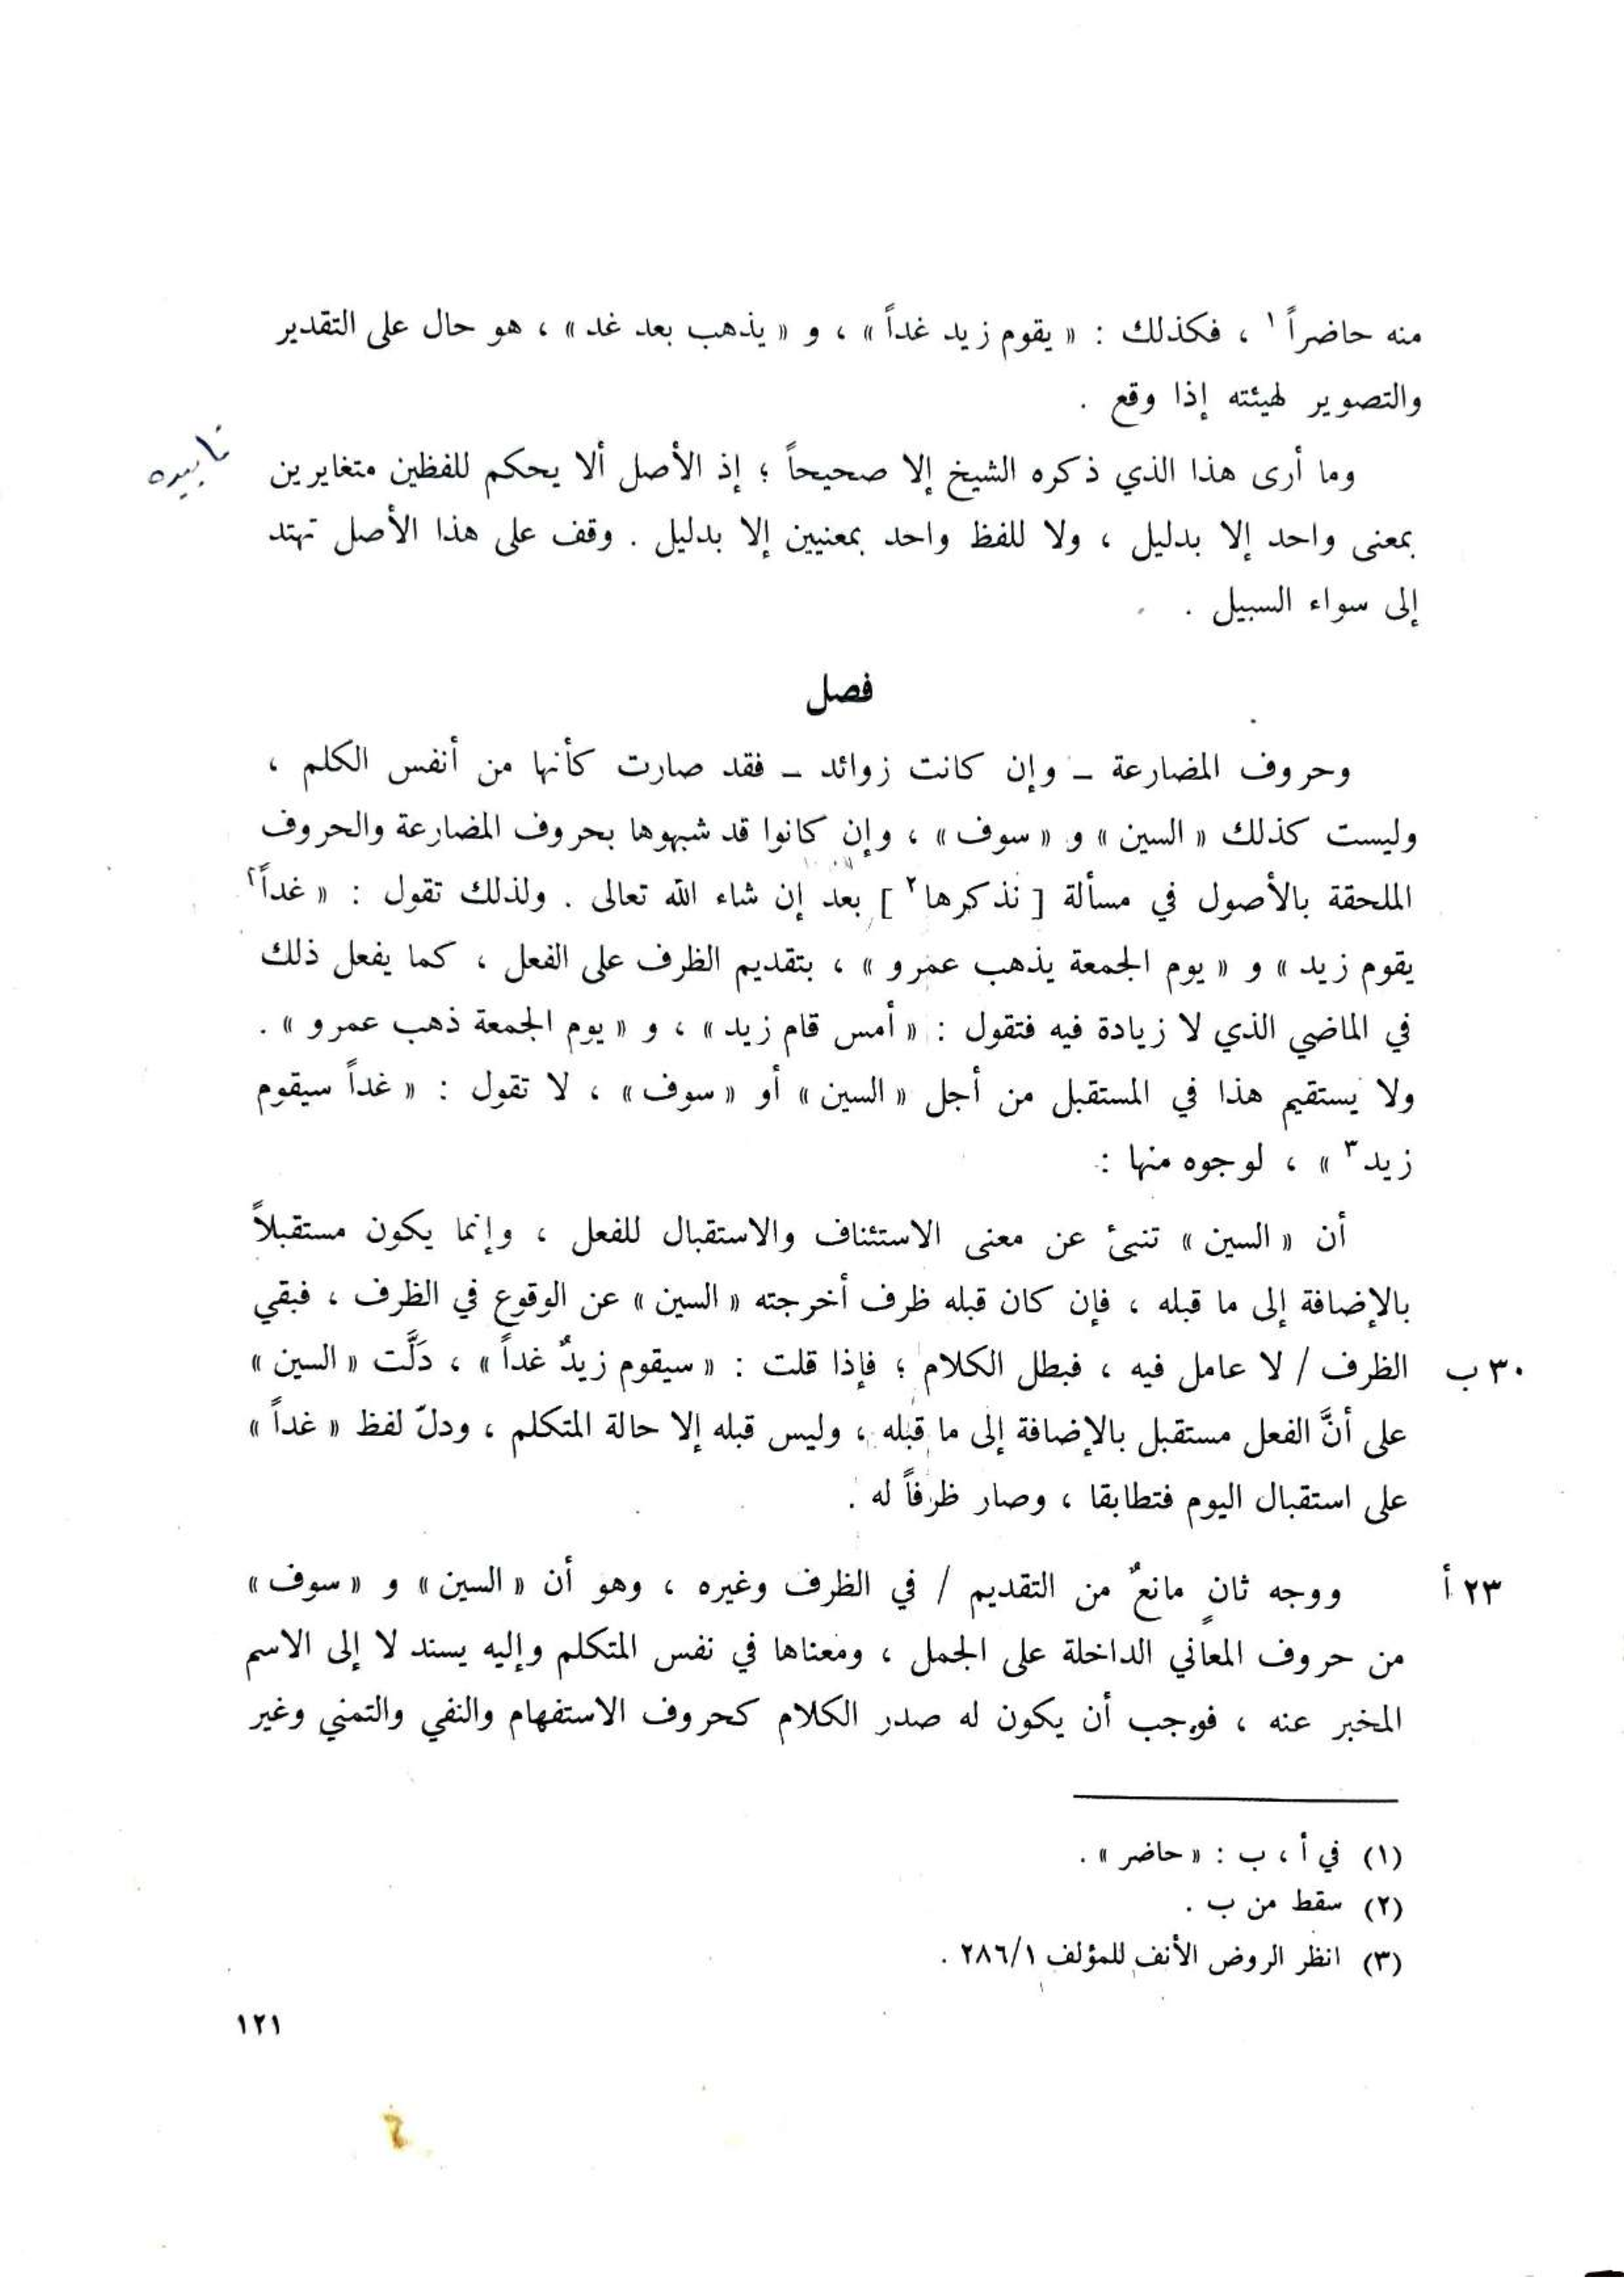 منه حاضراً ١ ، فكذلك : « يقوم زيد غداً » ، و « يذهب بعد غد » ، هو حال على التقدير
والتصوير لهيئته إذا وقع .
وما أرى هذا الذي ذكره الشيخ إلا صحيحاً ؛ إذ الأصل ألا يحكم للفظين متغايرين
بمعنى واحد إلا بدليل ، ولا للفظ واحد بمعنيين إلا بدليل . وقف على هذا الأصل تهتد
إلى سواء السبيل .
فصل
وحروف المضارعة – وإن كانت زوائد – فقد صارت كأنها من أنفس الكلم ،
وليست كذلك « السين » و « سوف » ، وإن كانوا قد شبهوها بحروف المضارعة والحروف
الملحقة بالأصول في مسألة [ نذكرها ٢ ] بعد إن شاء الله تعالى . ولذلك تقول : « غداً
يقوم زيد » و « يوم الجمعة يذهب عمرو » ، بتقديم الظرف على الفعل ، كما يفعل ذلك
في الماضي الذي لا زيادة فيه فتقول : « أمس قام زيد » ، و « يوم الجمعة ذهب عمرو » .
ولا يستقيم هذا في المستقبل من أجل « السين » أو « سوف » ، لا تقول : « غداً سيقوم
زيد ٣ » ، لوجوه منها :
أن « السين » تنبئ عن معنى الاستئناف والاستقبال للفعل ، وإنما يكون مستقبلاً
بالإضافة إلى ما قبله ، فإن كان قبله ظرف أخرجته « السين » عن الوقوع في الظرف ، فبقي
٣٠ ب الظرف / لا عامل فيه ، فبطل الكلام ؛ فإذا قلت : « سيقوم زيدٌ غداً » ، دَلَّت « السين »
على أنَّ الفعل مستقبل بالإضافة إلى ما قبله ، وليس قبله إلا حالة المتكلم ، ودلّ لفظ « غداً »
على استقبال اليوم فتطابقا ، وصار ظرفاً له .
٢٣ أ ووجه ثانٍ مانعٌ من التقديم / في الظرف وغيره ، وهو أن « السين » و « سوف »
من حروف المعاني الداخلة على الجمل ، ومعناها في نفس المتكلم وإليه يسند لا إلى الاسم
المخبر عنه ، فوجب أن يكون له صدر الكلام كحروف الاستفهام والنفي والتمني وغير
(١) في أ ، ب : « حاضر » .
(٢) سقط من ب .
(٣) انظر الروض الأنف للمؤلف ٢٨٦/١ .
١٢١